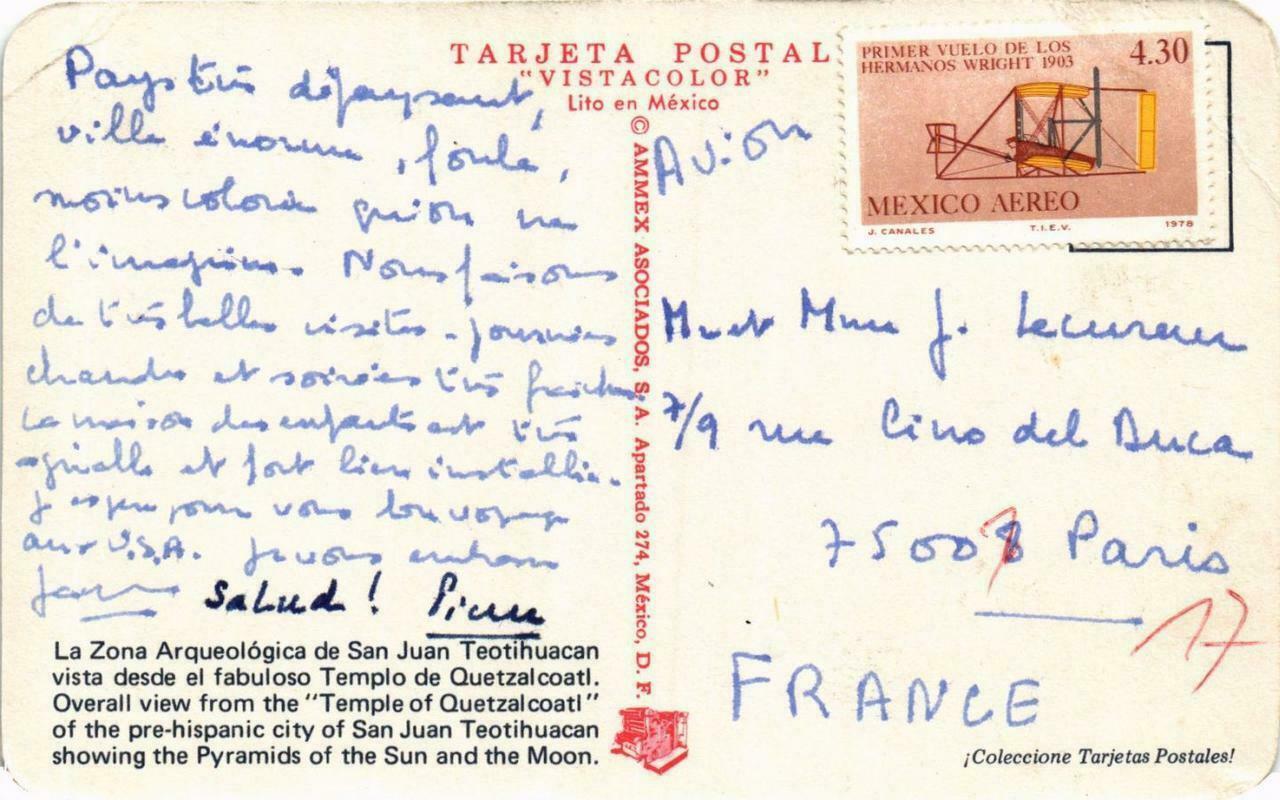 TARJETA POSTAL
"VISTACOLOR"
Lito en México
Pays très dépaysant,
ville énorme, foule,
moins colorée qu'on ne
l'imagine. Nous faisons
de très belles visites. journées
chaudes et soirées très fraîches.
La maison des enfants est très
agréable et fort bien installée.
J'espère pour vous bon voyage
aux U.S.A. Je vous embrasse
Salud!
La Zona Arqueológica de San Juan Teotihuacan
vista desde el fabuloso Templo de Quetzalcoatl.
Overall view from the "Temple of Quetzalcoatl"
of the pre-hispanic city of San Juan Teotihuacan
showing the Pyramids of the Sun and the Moon.
© AMMEX ASOCIADOS, S. A. Apartado 274, México, D. F.
Avion
PRIMER VUELO DE LOS
HERMANOS WRIGHT 1903
4.30
MEXICO AEREO
J. CANALES T.I.E.V. 1978
M et Mme J.
7/9 rue Cino del Duca
7500 Paris
17
FRANCE
¡Coleccione Tarjetas Postales!